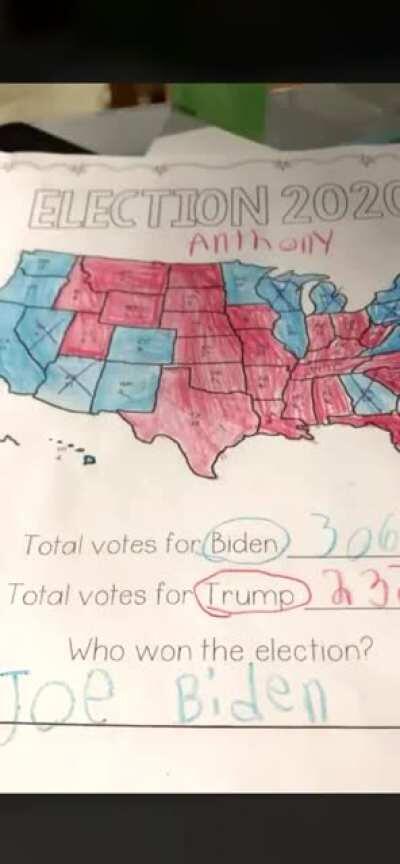 ELECTION 202
Anthony
Total votes for Biden 306
Total votes for Trump 23
Who won the election?
Joe Biden